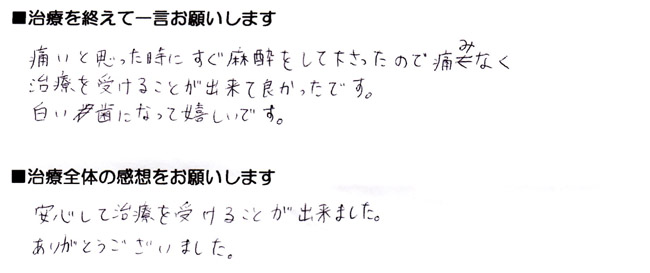 ■治療を終えて一言お願いします
痛いと思った時にすぐ麻酔をして下さったので痛みなく
治療を受けることが出来て良かったです。
白い歯になって嬉しいです。
■治療全体の感想をお願いします
安心して治療を受けることが出来ました。
ありがとうございました。